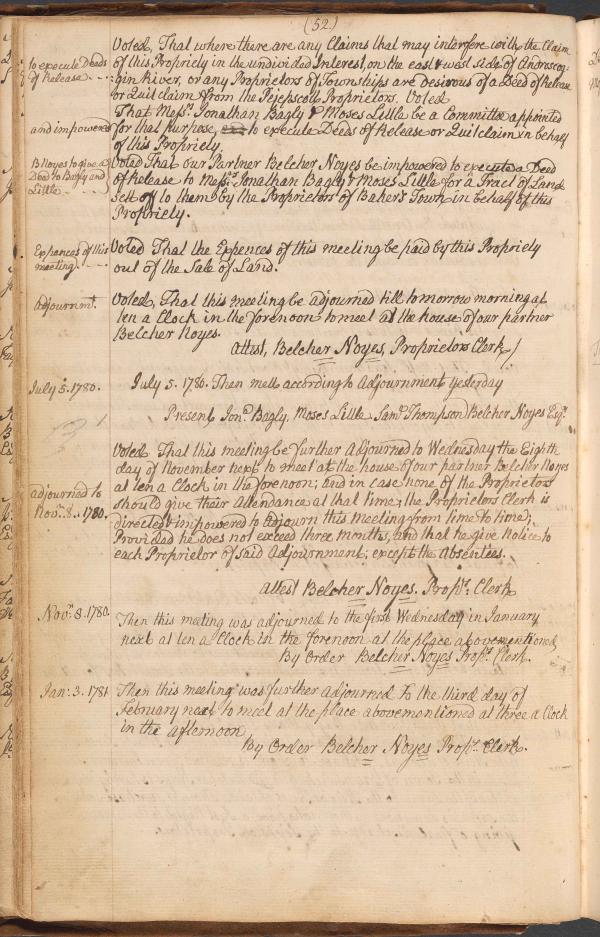 (52)
Voted, That where there are any Claims that may interfere with the Claim
to execute Deeds
of this Propriety in the undivided Interest, on the east & west side of Androscog-
of Release
gin River, or any Proprietors of Townships are desirous of a Deed of Release
or Quit claim from the Pejepscott Proprietors. Voted
That Messrs. Jonathan Bagly & Moses Little be a Committee appointed
and impowered
for that purpose, to execute Deeds of Release or Quitclaim in behalf
of this Propriety.
B Noyes to give a
Voted That our Partner Belcher Noyes be impowered to execute a Deed
Deed to Bagly and
of Release to Messrs. Jonathan Bagly & Moses Little for a Tract of Land
Little
sett off to them by the Proprietors of Bakers Town in behalf of this
Propriety.
Expences of this
Voted That the Expences of this meeting be paid by this Propriety
meeting
out of the Sale of Land.
Adjournmt.
Voted, That this meeting be adjourned till tomorrow morning at
ten a Clock in the forenoon to meet at the house of our partner
Belcher Noyes.
Attest, Belcher Noyes, Proprietors Clerk
July 5. 1780.
July 5. 1780. Then mett according to Adjournment yesterday
Present Jona. Bagly, Moses Little Saml. Thompson Belcher Noyes Esqrs.
Voted That this meeting be further Adjourned to Wednesday the Eighth
day of November next to meet at the house of our partner Belcher Noyes
at ten a Clock in the forenoon; and in case none of the Proprietors
adjourned to
should give their Attendance at that time; the Proprietors Clerk is
Novr. 8. 1780.
directed & impowered to Adjourn this meeting from time to time;
Provided he does not exceed three months, and that he give Notice to
each Proprietor of said Adjournment; except the Absentees.
Attest Belcher Noyes. Proprs. Clerk
Novr. 8. 1780.
Then this meeting was adjourned to the first Wednesday in January
next at ten a Clock in the forenoon at the place abovementioned
By Order Belcher Noyes Proprs. Clerk.
Jan: 3. 1781
Then this meeting was further adjourned to the third day of
February next to meet at the place abovementioned at three a Clock
in the afternoon
By Order Belcher Noyes Proprs. Clerk.